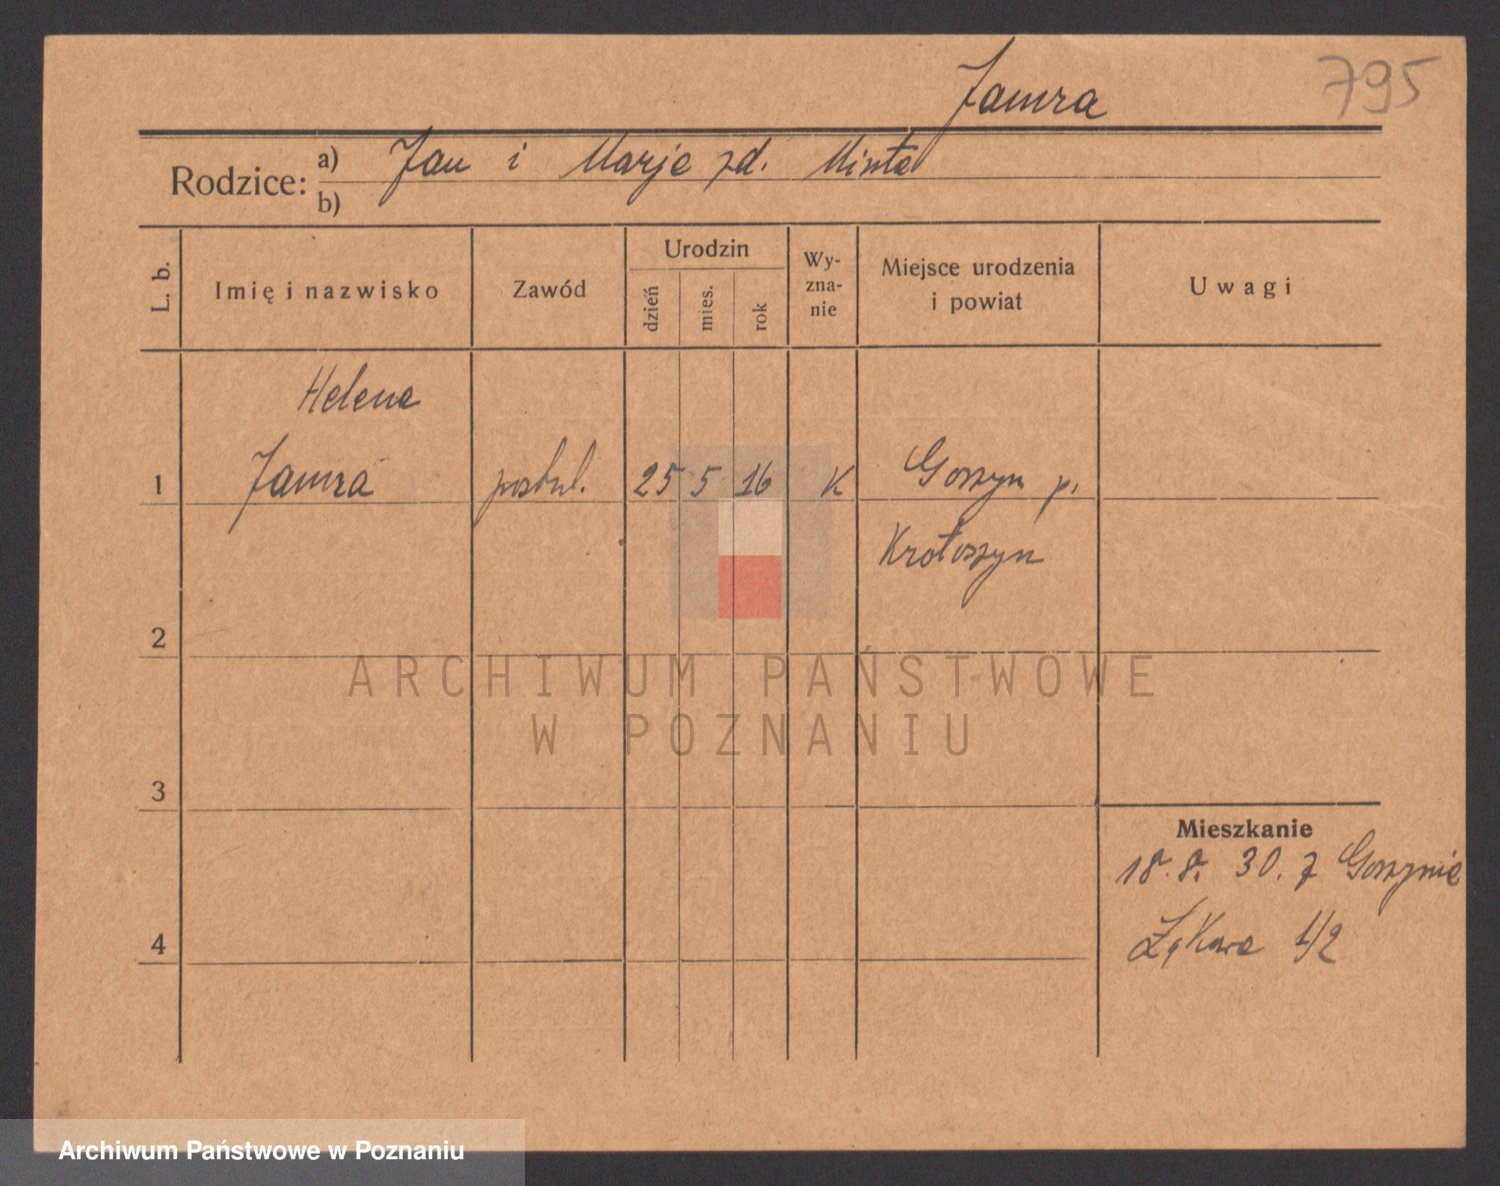 Jamra
795
Rodzice: a) Jan i Marje zd. Minta
b)
L. b.
Imię i nazwisko
Zawód
Urodzin
dzień
mies.
rok
Wy-
zna-
nie
Miejsce urodzenia
i powiat
Uwagi
Helena
1 Jamra postul. 25 5 16 K Goszyn p.
Krotoszyn
2
ARCHIWUM PAŃSTWOWE
W POZNANIU
3
Mieszkanie
18. 8. 30. z Goszynie
4
Łąkowa 1/2
Archiwum Państwowe w Poznaniu